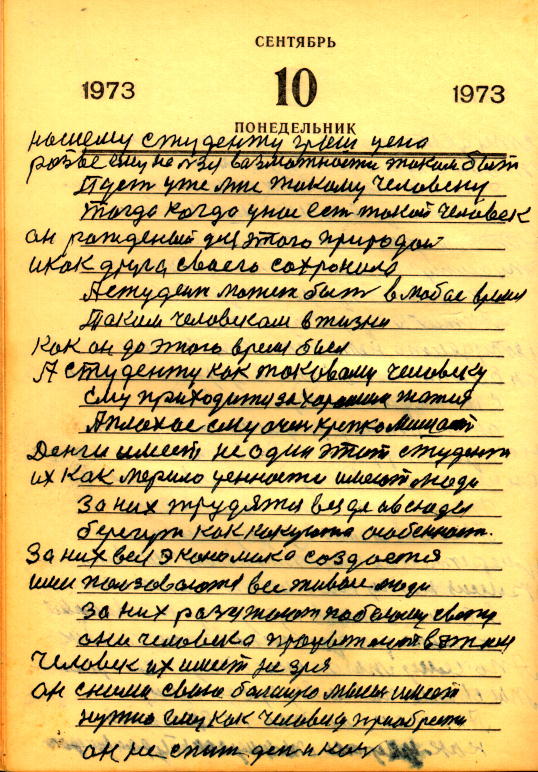 СЕНТЯБРЬ
1973 10 1973
ПОНЕДЕЛЬНИК
нашему студенту грош цена
разве ему не дал вазможности таким быт
Пуст уже мне такому человеку
тогда когда у нас ест такой человек
он рожденый для этого природай
и как друга своего сохронила
А студент может быт в любое время
Таким человекам в жизни
как он до этого время был
А студенту как таковому человеку
ему приходитя за хорошим
А плохое ему очен крепко мешает
Денги имеет, не один этот студент
их как мерило ценности имеют люди
За них трудятя везде
берегут как какуюта особенност.
За них вся экономика создается
ими ползоваются все живые люди
За них разужают по белому свету
они человека процветают в жизни
Человек их имеет не зря
он сними свою болшую имеет
нужно ему как человеку приобрести
он не спит ден и ноч